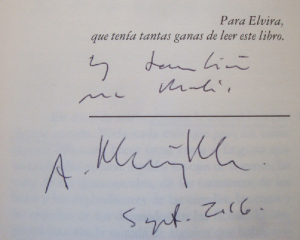 Para Elvira,
que tenía tantas ganas de leer este libro.
Y también
A.
Sept. 2016.